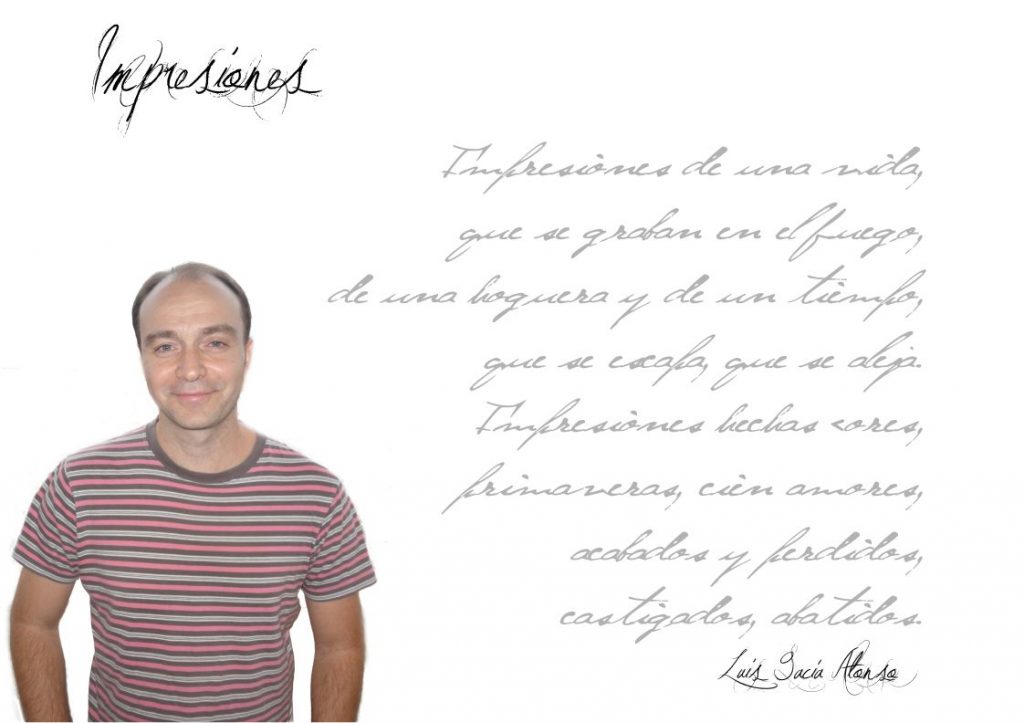 Impresiones
Impresiones de una vida,
que se graban en el fuego,
de una hoguera y de un tiempo,
que se escapa, que se aleja.
Impresiones hechas cores,
primaveras, cien amores,
acabados y perdidos,
castigados, abatidos.
Luis Gacía Alonso